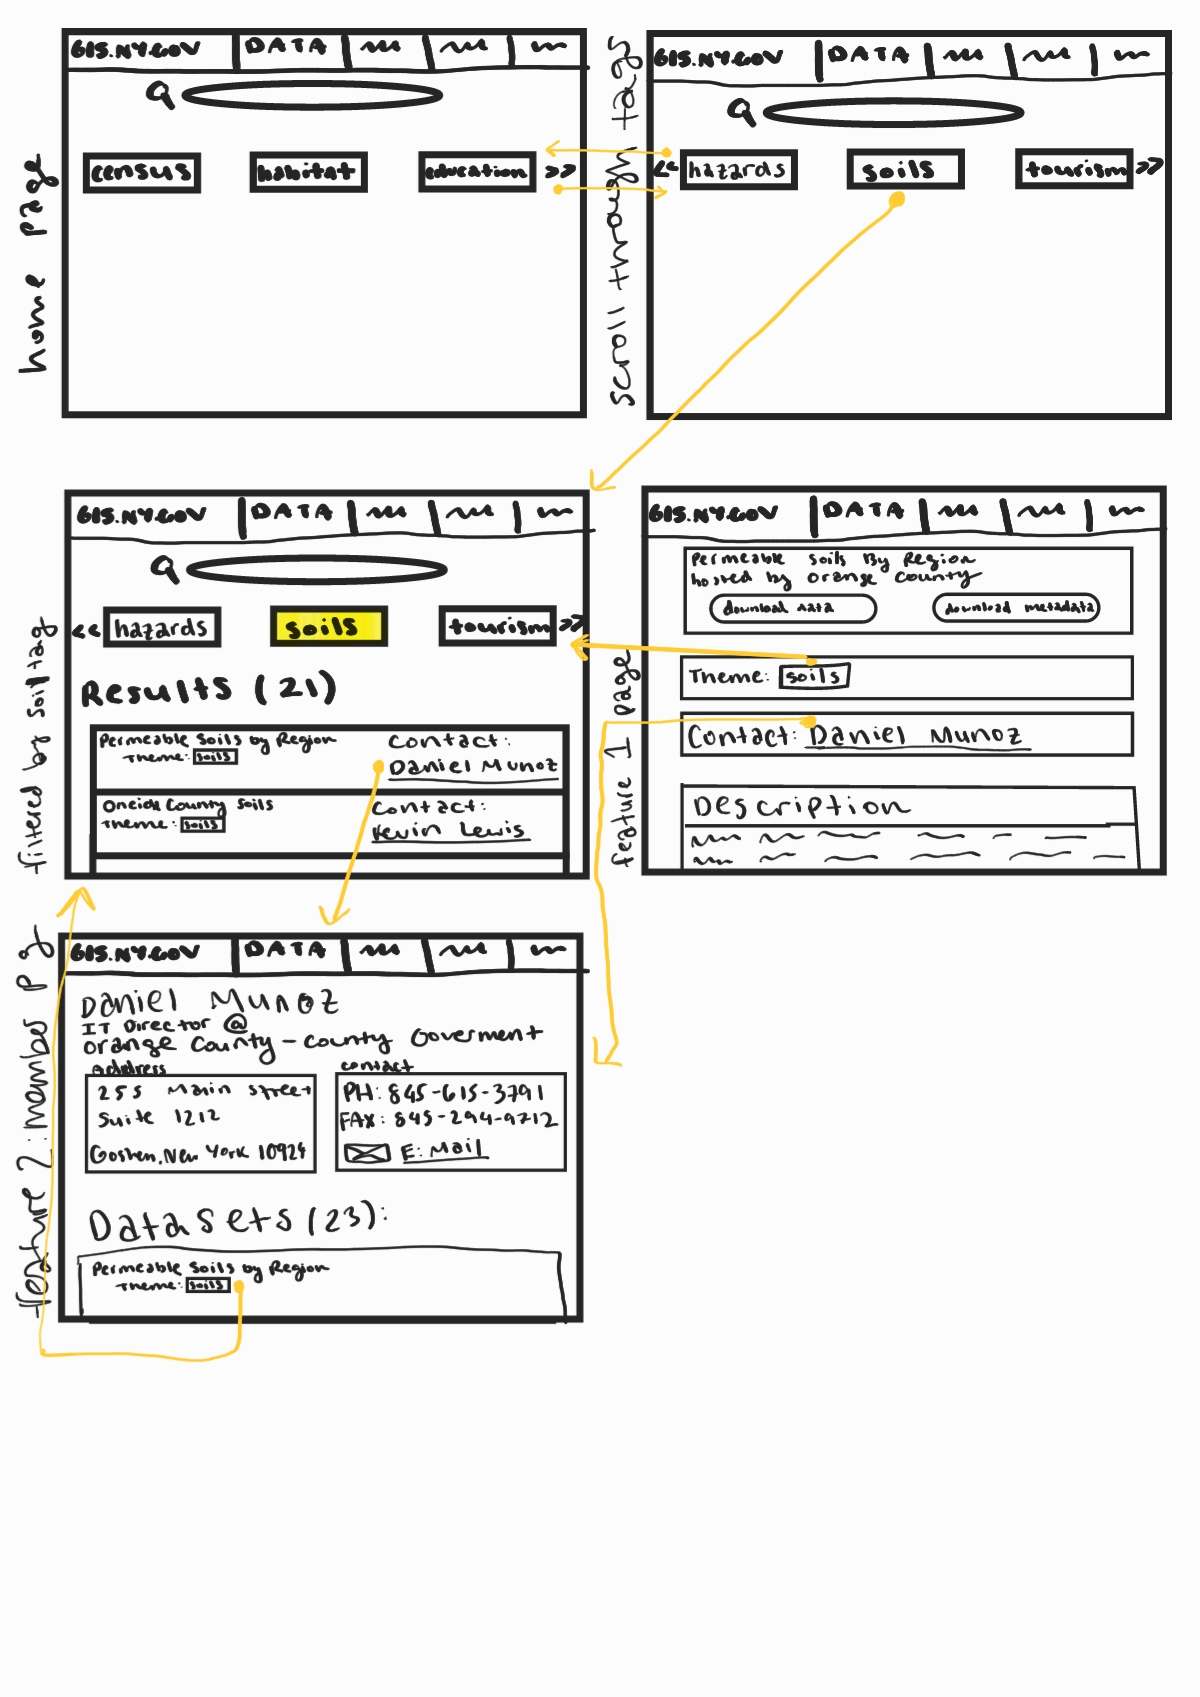 home page
GIS.NY.GOV DATA
census habitat education >>
scroll through tags
GIS.NY.GOV DATA
<< hazards soils tourism >>
filtered by soil tag
GIS.NY.GOV DATA
<< hazards soils tourism >>
Results (21)
Permeable Soils by Region
Theme: soils
Contact:
Daniel Munoz
Oneida County Soils
Theme: soils
Contact:
Kevin Lewis
feature 1 page
GIS.NY.GOV DATA
Permeable Soils By Region
hosted by Orange County
download data
download metadata
Theme: soils
Contact: Daniel Munoz
Description
feature 2: member pg
GIS.NY.GOV DATA
Daniel Munoz
IT Director @
Orange County - County Goverment
Address
255 Main Street
Suite 1212
Goshen, New York 10924
contact
PH: 845-615-3791
FAX: 845-294-9712
E: Mail
Datasets (23):
Permeable Soils by Region
Theme: soils